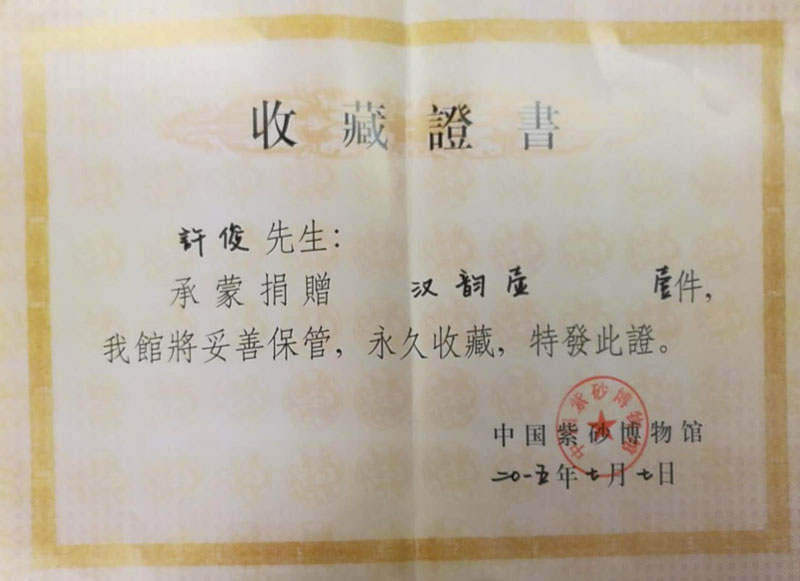 收藏證書
許俊先生：
承蒙捐贈 汉韵壶 壹件，
我館將妥善保管，永久收藏，特發此證。
中国紫砂博物馆
中国紫砂博物馆
二〇一五年七月七日